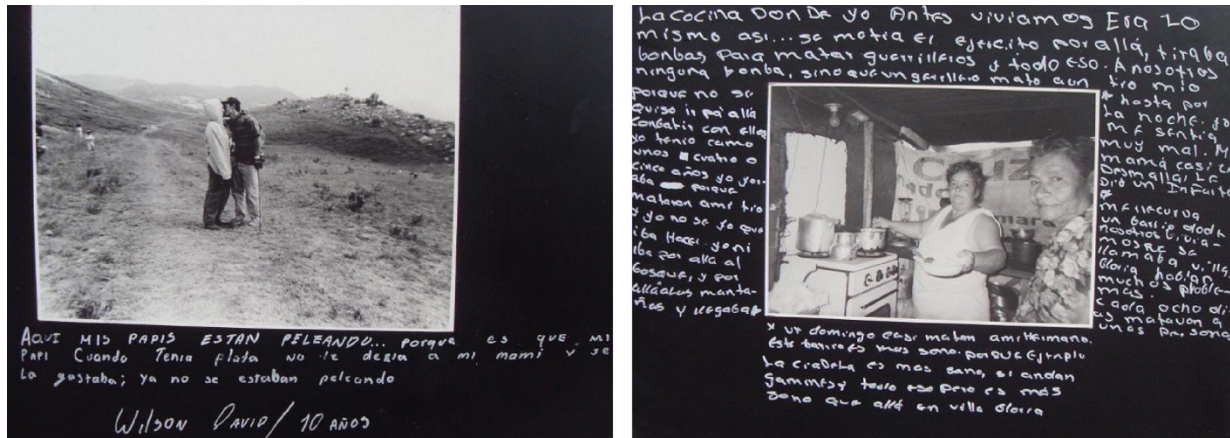 AQUI MIS PAPIS ESTAN PELEANDO... porque es que mi
PAPI Cuando Tenia plata no le desia a mi mami y se
La gastaba; ya no se estaban peleando
WILSON DAVID / 10 AÑOS
La cocina DONDE yo Antes viviamos Era Lo
mismo asi... se metia el ejercito por allá, tiraba
bombas, para matar guerrilleros y todo ESO. A nosotros
ninguna bomba, sino que un guerillero mato a un tio mio
porque no se
quiso ir pa' allá
Conbatir con ellos
yo tenia como
unos cuatro o
cinco años yo
aba porque
mataron a mi tio
y yo no se yo que
iba Hacer. yo ni
iba por allá al
bosque, y por
allá a las monta-
ñas y llegaba
hasta por
La noche. yo
ME sentia
muy mal. Mi
mamá casi se
Desmalla. La
Dio un Infarto
un barrio donde
nosotros vivia-
mos se
llamaba villa
Gloria habian
muchos proble-
mas.
cada ocho di
as mataron a
unas personas
y un domingo casi matan a mi Hermano.
Este barrio es mas sano. porque Ejemplo
La ciadela es mas sano, si andan
gammes y todo eso pero es más
sono que allá en villa Gloria